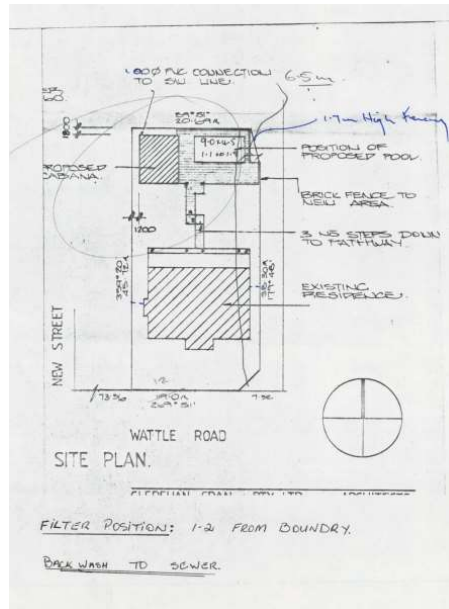 100Ø PVC CONNECTION
TO SW LINE.
6.5m
60.
89°51'
20.69
1800
9.0 x 4.5
1.7m High Fencing
POSITION OF
PROPOSED POOL.
PROPOSED
CABANA.
BRICK FENCE TO
NEW AREA.
1200
3 N° STEPS DOWN
TO PATHWAY.
EXISTING
RESIDENCE.
NEW STREET
269°51'
WATTLE ROAD
SITE PLAN.
PTY LTD ARCHITECTS
FILTER POSITION: 1-2 FROM BOUNDRY.
BACKWASH TO SEWER.